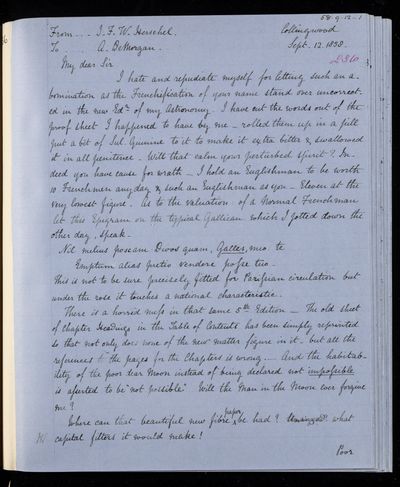 58.9.12.1
From ... J. F. W. Herschel. Collingwood
To ..... A. DeMorgan. Sept. 12. 1858.
My dear Sir
I hate and repudiate myself for letting such an a-
bomination as the Frenchification of your name stand over uncorrect-
ed in the new Edn. of my Astronomy. I have cut the words out of the
proof sheet I happened to have by me – rolled them up in a pill
put a bit of Sul. Quinine to it to make it extra bitter & swallowed
it in all penitence. Will that calm your perturbed spirit? In-
deed you have cause for wrath – I hold an Englishman to be worth
10 Frenchmen any day & such an Englishman as you – Eleven at the
very lowest figure. As to the valuation of a Normal Frenchman
let this Epigram on the typical Gallican which I jotted down the
other day, speak –
Nil melius poscam Divos quam, Galle, meo te
Emptum alias pretio vendere posse tuo –
This is not to be sure precisely fitted for Parisian circulation but
under the rose it touches a national characteristic.
There is a horrid mess in that same 5th Edition – The old sheet
of Chapter Headings in the Table of Contents has been simply reprinted
so that not only does none of the new matter figure in it – but all the
references to the pages for the Chapters is wrong.... And the habitab-
ility of the poor dear Moon instead of being declared not impossible
is asserted to be "not possible" Will the Man in the Moon ever forgive
me?
Where can that beautiful new fibre paper be had? what
capital filters it would make!
Poor